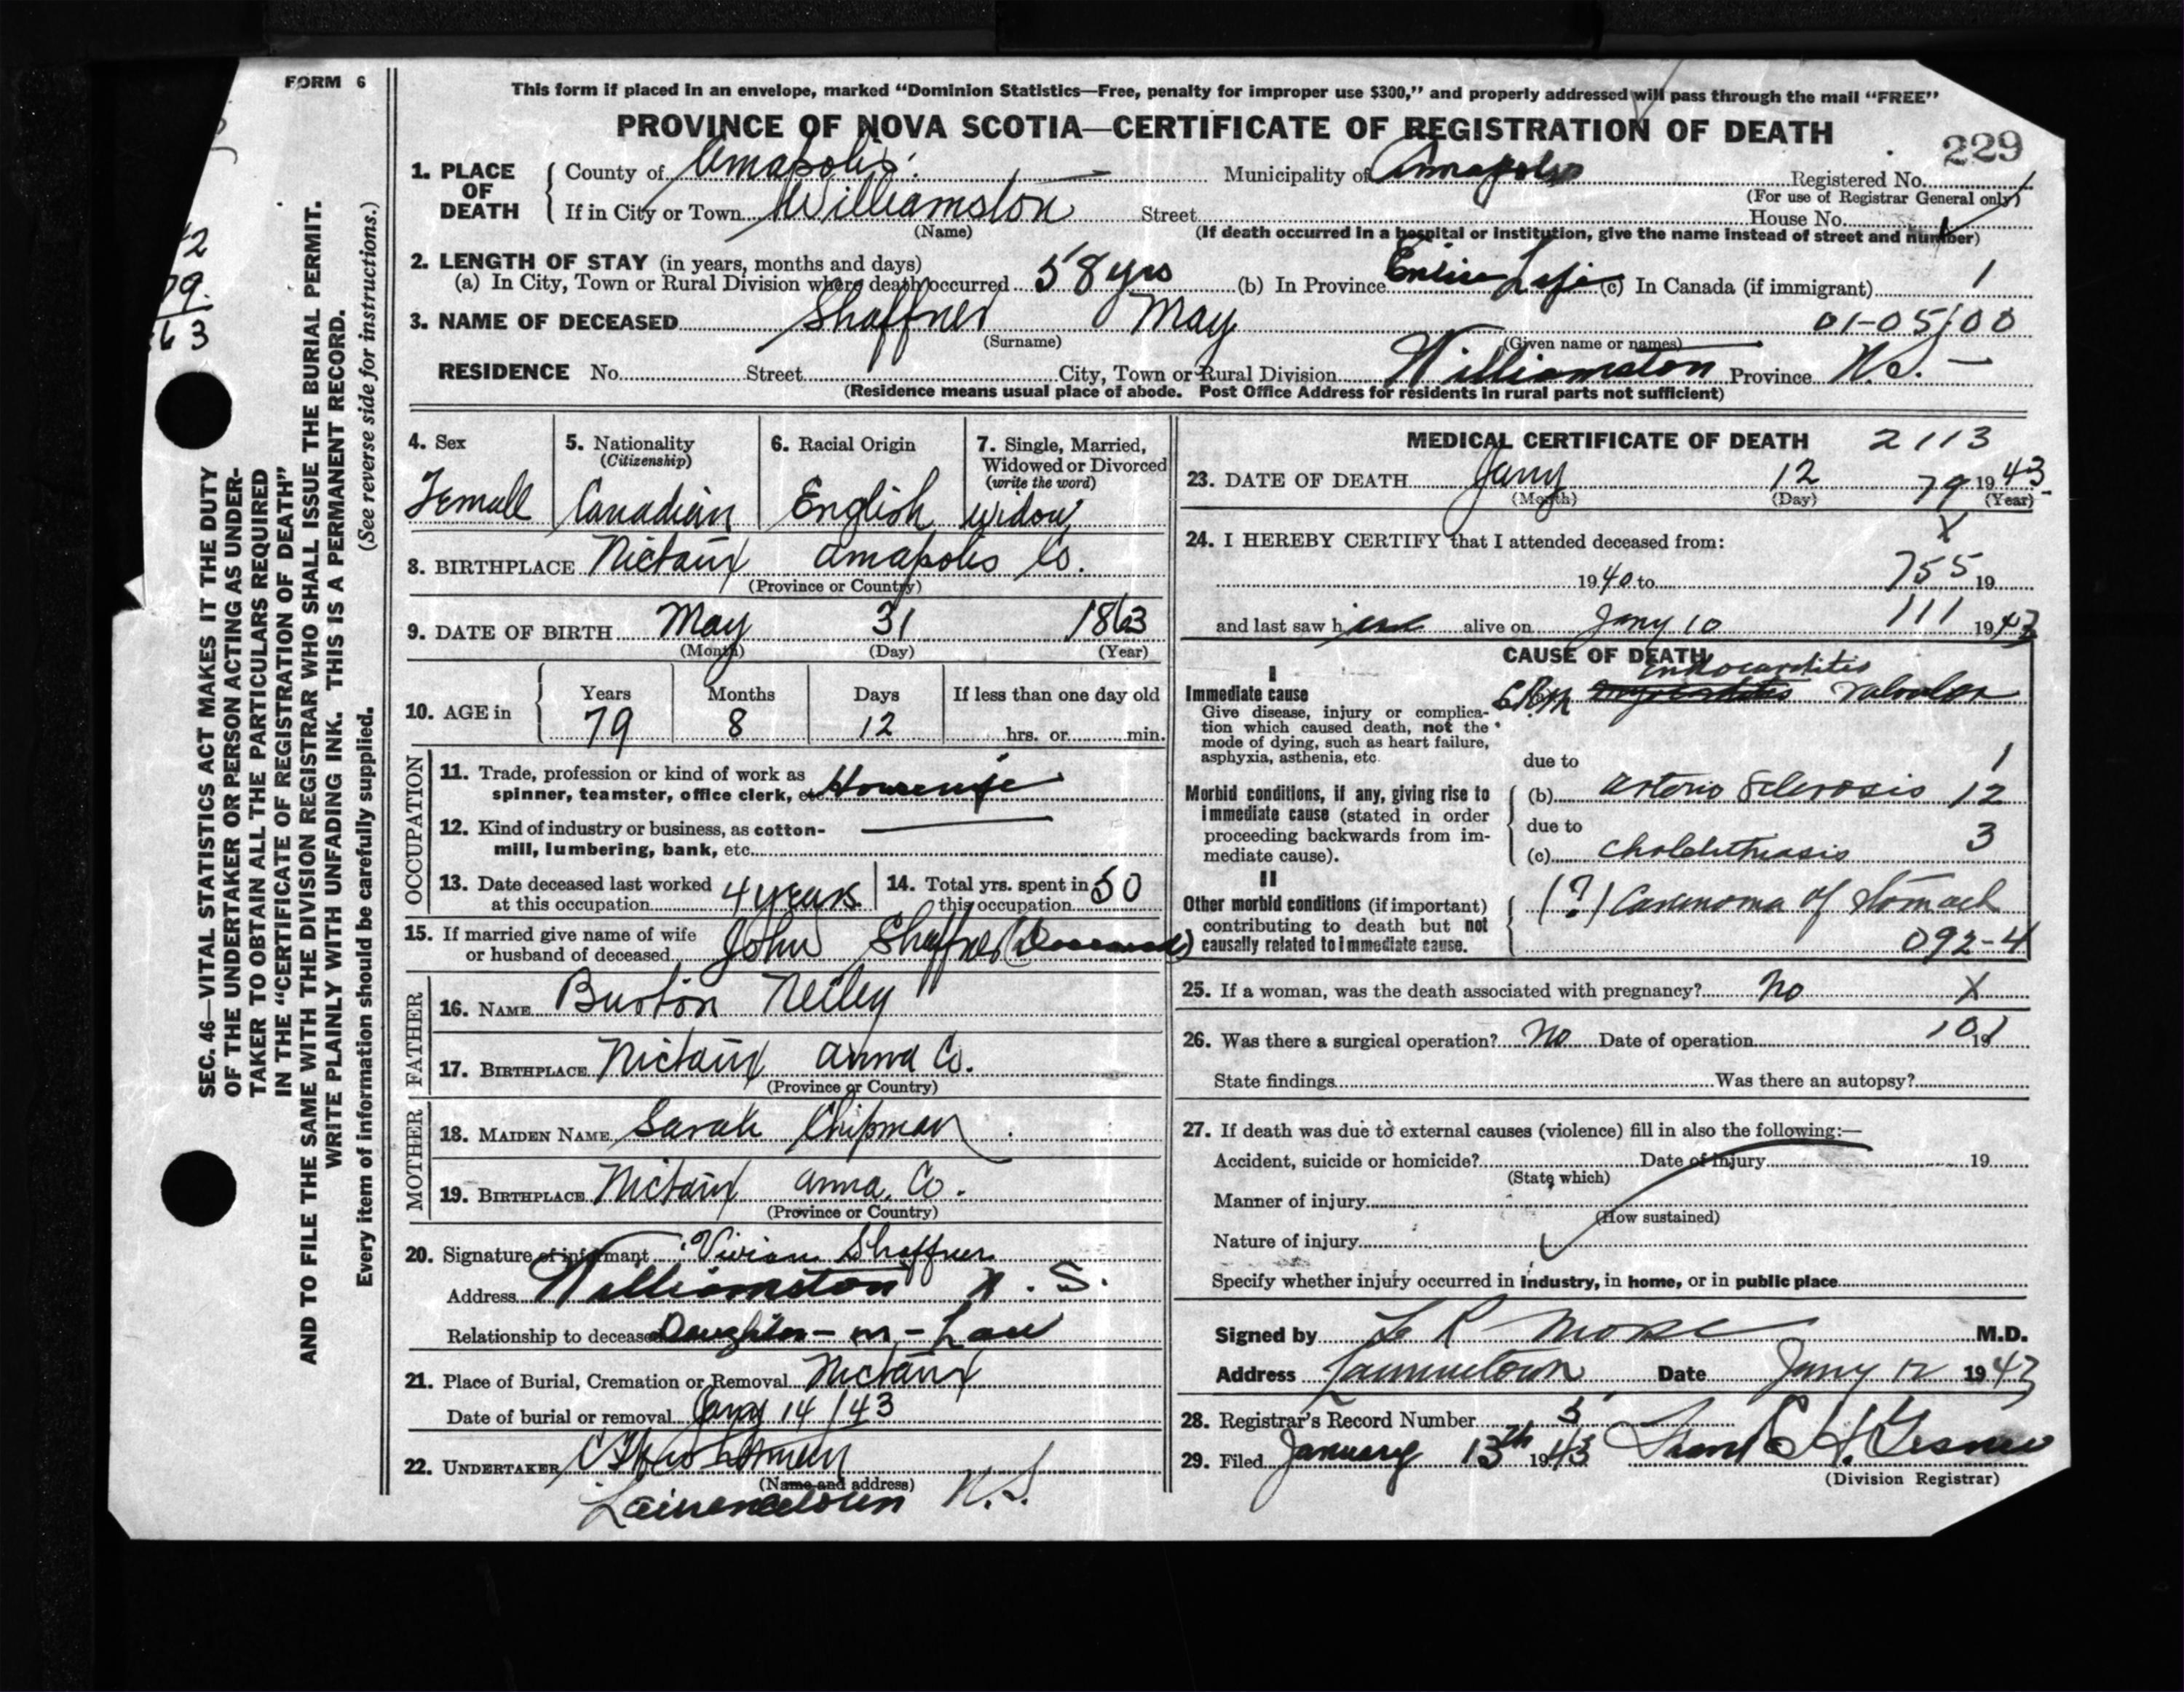 FORM 6
This form if placed in an envelope, marked "Dominion Statistics—Free, penalty for improper use $300," and properly addressed will pass through the mail "FREE"
PROVINCE OF NOVA SCOTIA—CERTIFICATE OF REGISTRATION OF DEATH
229
1. PLACE OF DEATH County of Annapolis Municipality of Annapolis Registered No.
(For use of Registrar General only)
If in City or Town Williamston Street House No.
(Name) (If death occurred in a hospital or institution, give the name instead of street and number)
2. LENGTH OF STAY (in years, months and days)
(a) In City, Town or Rural Division where death occurred 58 yrs (b) In Province Entire Life (c) In Canada (if immigrant) 1
3. NAME OF DECEASED Shaffner May 01-05/00
(Surname) (Given name or names)
RESIDENCE No. Street City, Town or Rural Division Williamston Province N.S. —
(Residence means usual place of abode. Post Office Address for residents in rural parts not sufficient)
4. Sex
Female
5. Nationality
(Citizenship)
Canadian
6. Racial Origin
English
7. Single, Married,
Widowed or Divorced
(write the word)
Widow
8. BIRTHPLACE Nictaux Annapolis Co.
(Province or Country)
9. DATE OF BIRTH May 31 1863
(Month) (Day) (Year)
10. AGE in Years Months Days If less than one day old
79 8 12 hrs. or min.
OCCUPATION
11. Trade, profession or kind of work as
spinner, teamster, office clerk, etc. Housewife
12. Kind of industry or business, as cotton-
mill, lumbering, bank, etc.
13. Date deceased last worked
at this occupation 4 years
14. Total yrs. spent in
this occupation 50
15. If married give name of wife
or husband of deceased John Shaffner (Deceased)
FATHER
16. NAME Burton Neiley
17. BIRTHPLACE Nictaux Anna Co.
(Province or Country)
MOTHER
18. MAIDEN NAME Sarah Chipman
19. BIRTHPLACE Nictaux Anna. Co.
(Province or Country)
20. Signature of informant Vivian Shaffner
Address Williamston N.S.
Relationship to deceased Daughter-in-Law
21. Place of Burial, Cremation or Removal Nictaux
Date of burial or removal Jany 14/43
22. UNDERTAKER
(Name and address)
Lawrencetown N.S.
MEDICAL CERTIFICATE OF DEATH 2113
23. DATE OF DEATH Jany 12 79 1943
(Month) (Day) (Year)
X
24. I HEREBY CERTIFY that I attended deceased from:
1940 to 755 19
and last saw her alive on Jany 10 111 1943
CAUSE OF DEATH
I
Endocarditis
Immediate cause Valvular
Give disease, injury or complica-
tion which caused death, not the
mode of dying, such as heart failure,
asphyxia, asthenia, etc.
due to 1
Morbid conditions, if any, giving rise to
immediate cause (stated in order
proceeding backwards from im-
mediate cause).
(b) Arterio Sclerosis 12
due to
(c) Cholelithiasis 3
II
Other morbid conditions (if important)
contributing to death but not
causally related to immediate cause.
(?) Carcinoma of Stomach
092-4
25. If a woman, was the death associated with pregnancy? No X
26. Was there a surgical operation? No Date of operation 19
State findings Was there an autopsy?
27. If death was due to external causes (violence) fill in also the following:—
Accident, suicide or homicide? Date of injury 19
(State which)
Manner of injury
(How sustained)
Nature of injury
Specify whether injury occurred in industry, in home, or in public place
Signed by L R Morse M.D.
Address Lawrencetown Date Jany 12 1943
28. Registrar's Record Number 5
29. Filed January 13th 1943 Frank H. Gesner
(Division Registrar)
SEC. 46—VITAL STATISTICS ACT MAKES IT THE DUTY
OF THE UNDERTAKER OR PERSON ACTING AS UNDER-
TAKER TO OBTAIN ALL THE PARTICULARS REQUIRED
IN THE "CERTIFICATE OF REGISTRATION OF DEATH"
AND TO FILE THE SAME WITH THE DIVISION REGISTRAR WHO SHALL ISSUE THE BURIAL PERMIT.
WRITE PLAINLY WITH UNFADING INK. THIS IS A PERMANENT RECORD.
Every item of information should be carefully supplied. (See reverse side for instructions.)